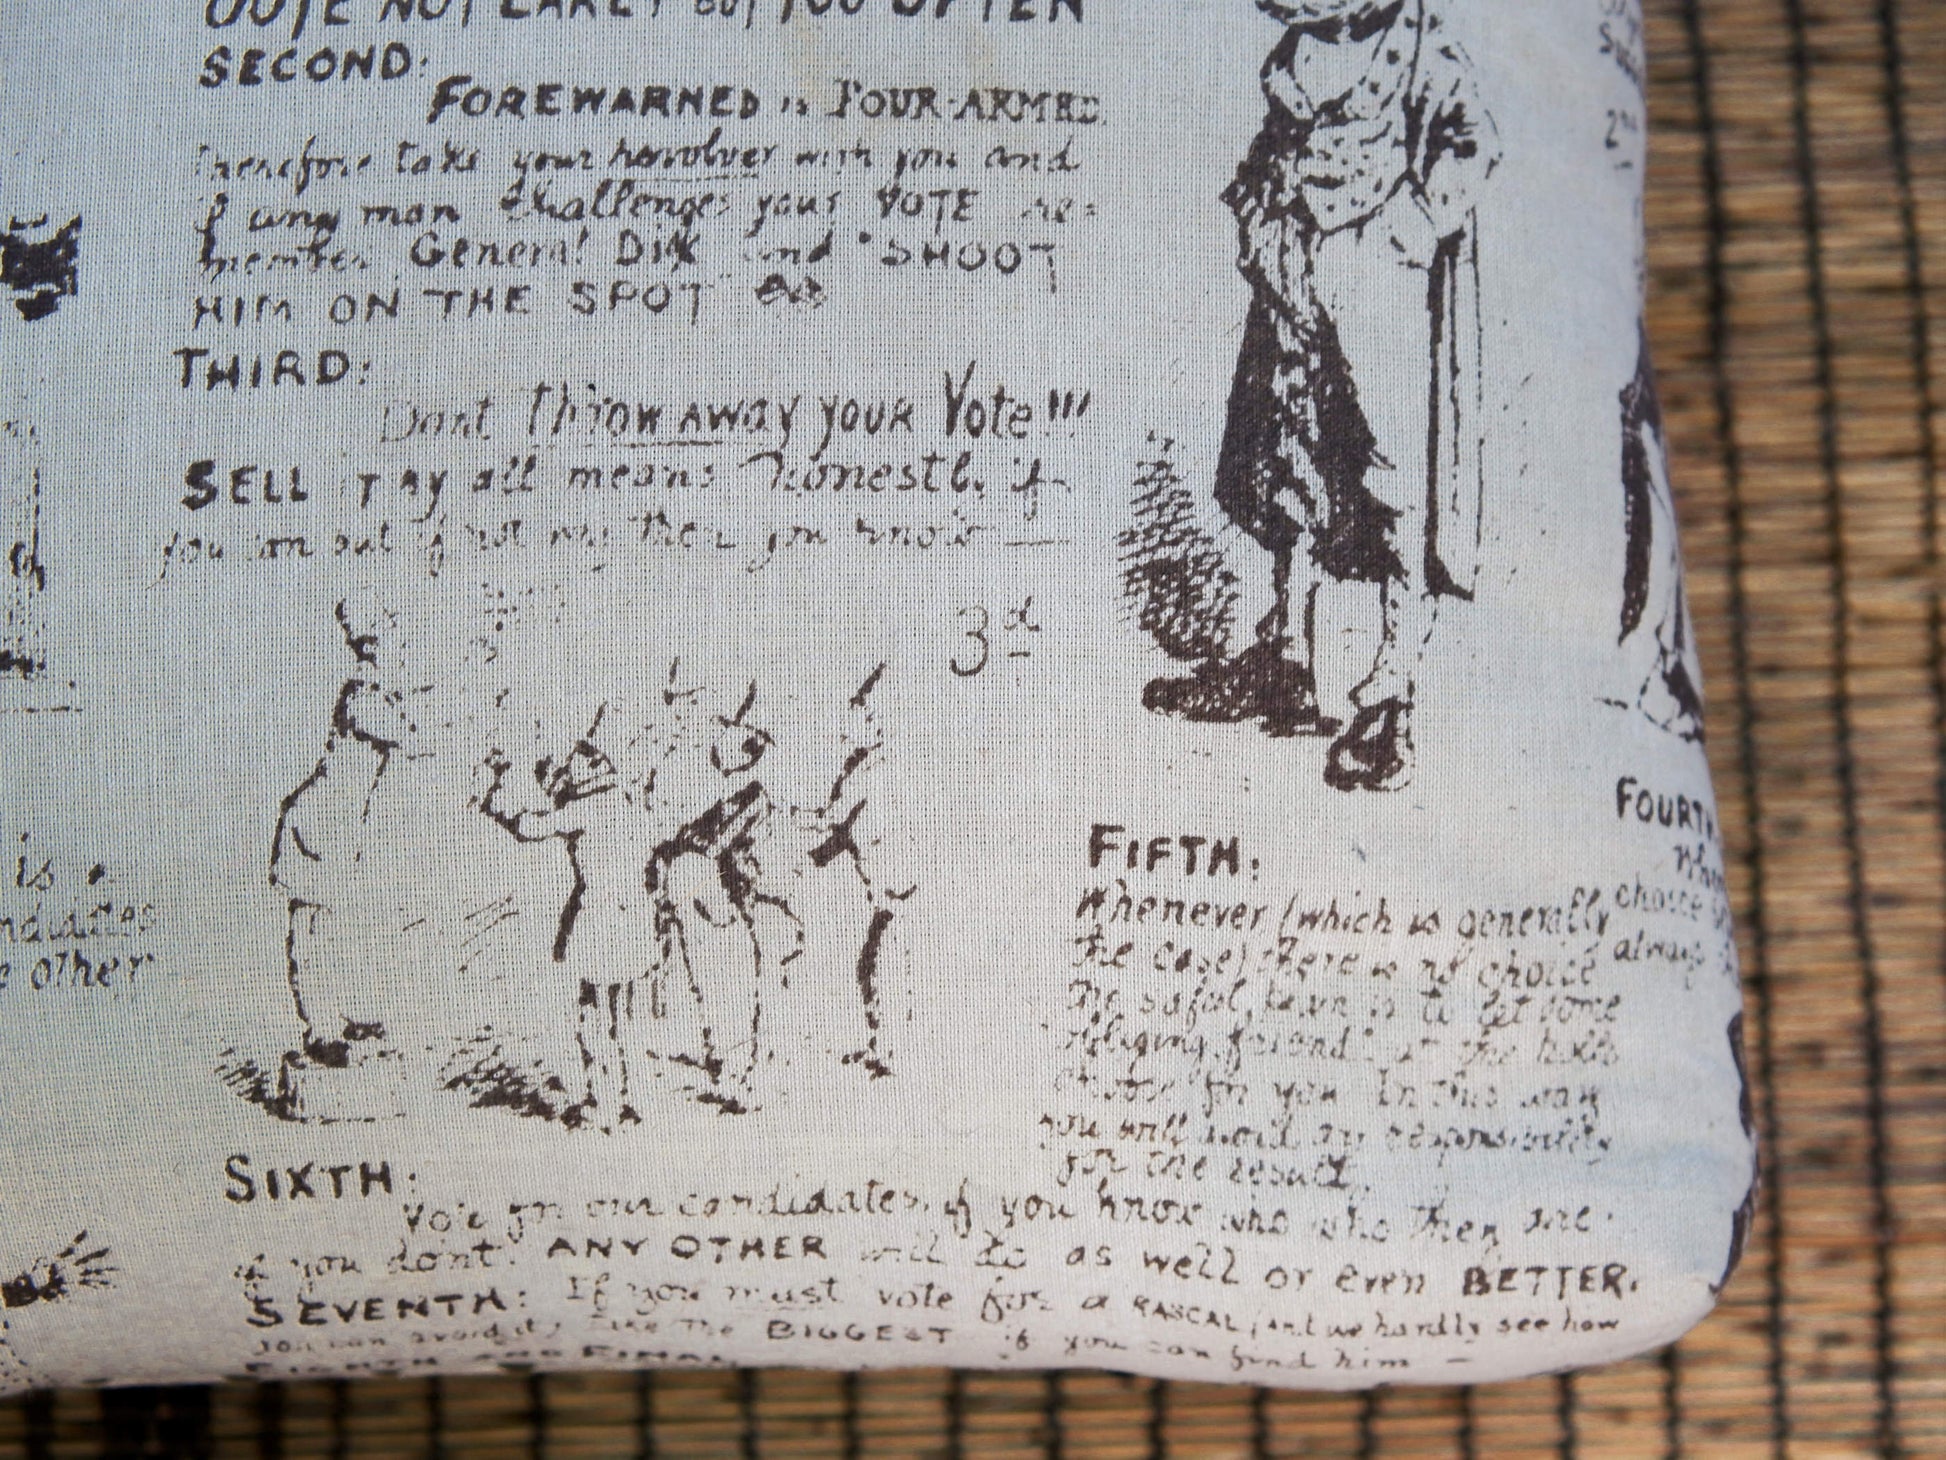 VOTE NOT EARLY BUT TOO OFTEN
SECOND:
FOREWARNED is FOUR-ARMED.
therefore take your revolver with you and
if any man challenges your VOTE re-
member General Dix and "SHOOT
HIM ON THE SPOT"
THIRD:
Dont Throw AWAY YOUR Vote!!!
SELL IT by all means honestly if
you can but if not why then you know —
3d
2nd
is a
candidates
other
FOURTH
choice
always
FIFTH:
Whenever (which is generally
the case) there is no choice
The safest plan is to let some
obliging friend at the
choose for you In this way
you will avoid any responsibility
for the result.
SIXTH:
Vote for our candidates, if you know who who they are.
if you dont. ANY OTHER will do as well or even BETTER.
SEVENTH: If you must vote for a RASCAL (and we hardly see how
you can avoid it) take the BIGGEST if you can find him —
EIGHTH AND FINAL